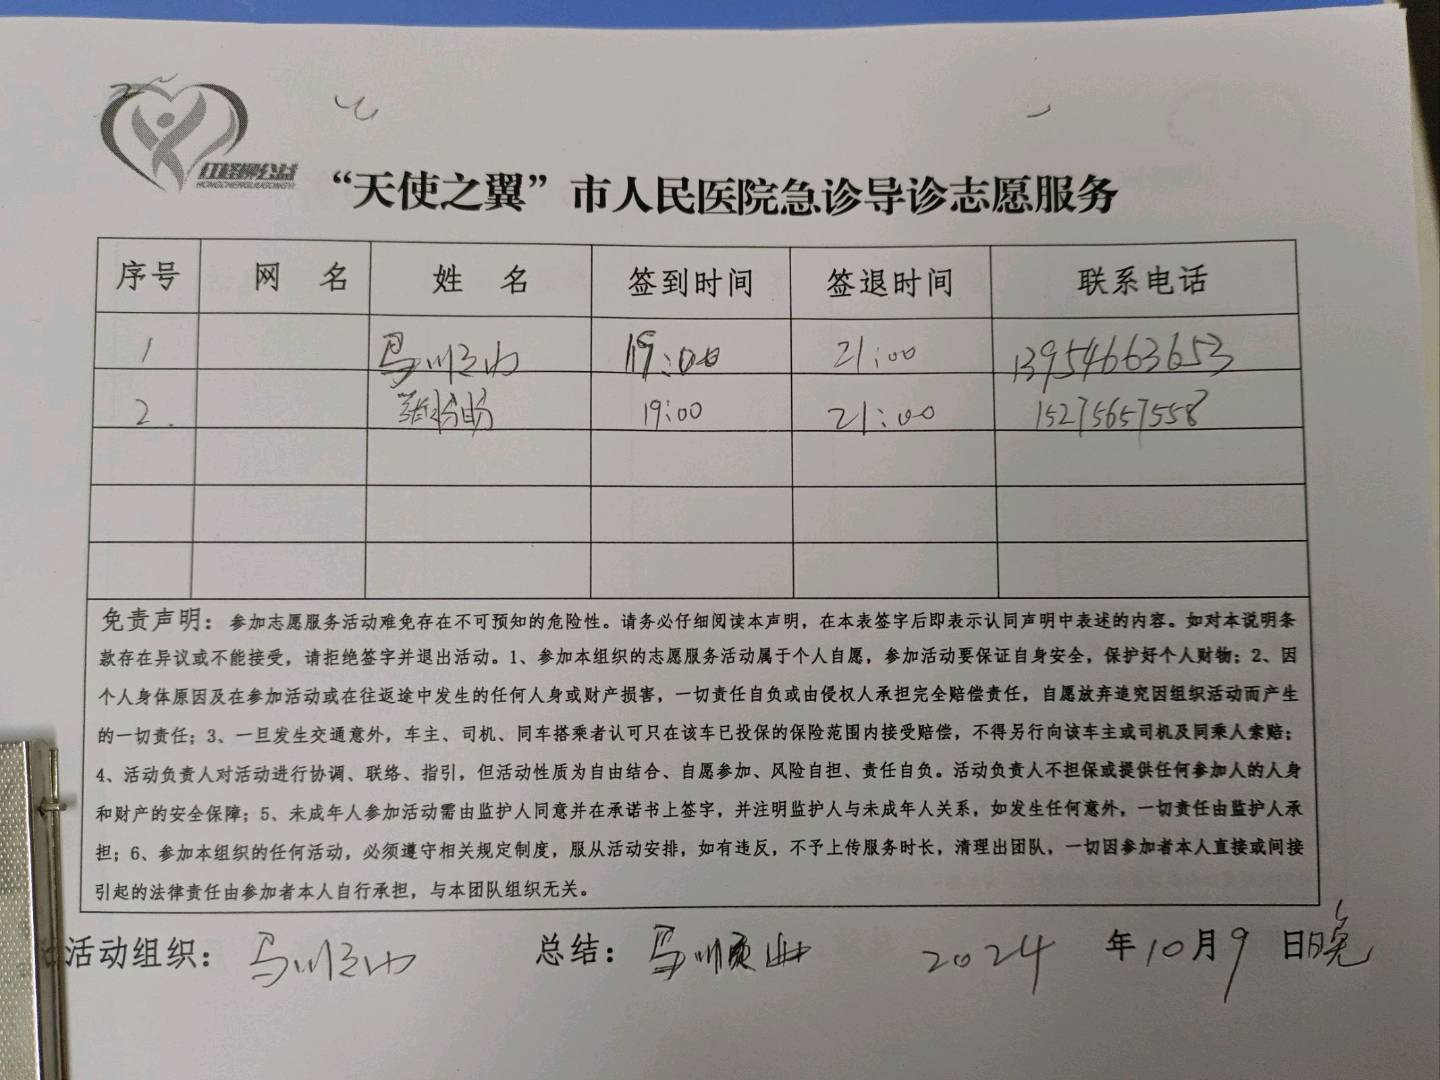 红柽柳公益
HONGCHENGLIUGONGYI
“天使之翼”市人民医院急诊导诊志愿服务
序号 网 名 姓 名 签到时间 签退时间 联系电话
1 19:00 21:00 13954663653
2. 19:00 21:00 15275657558
免责声明：参加志愿服务活动难免存在不可预知的危险性。请务必仔细阅读本声明，在本表签字后即表示认同声明中表述的内容。如对本说明条
款存在异议或不能接受，请拒绝签字并退出活动。1、参加本组织的志愿服务活动属于个人自愿，参加活动要保证自身安全，保护好个人财物；2、因
个人身体原因及在参加活动或在往返途中发生的任何人身或财产损害，一切责任自负或由侵权人承担完全赔偿责任，自愿放弃追究因组织活动而产生
的一切责任；3、一旦发生交通意外，车主、司机、同车搭乘者认可只在该车已投保的保险范围内接受赔偿，不得另行向该车主或司机及同乘人索赔；
4、活动负责人对活动进行协调、联络、指引，但活动性质为自由结合、自愿参加、风险自担、责任自负。活动负责人不担保或提供任何参加人的人身
和财产的安全保障；5、未成年人参加活动需由监护人同意并在承诺书上签字，并注明监护人与未成年人关系，如发生任何意外，一切责任由监护人承
担；6、参加本组织的任何活动，必须遵守相关规定制度，服从活动安排，如有违反，不予上传服务时长，清理出团队，一切因参加者本人直接或间接
引起的法律责任由参加者本人自行承担，与本团队组织无关。
活动组织： 总结： 2024 年10月9日晚